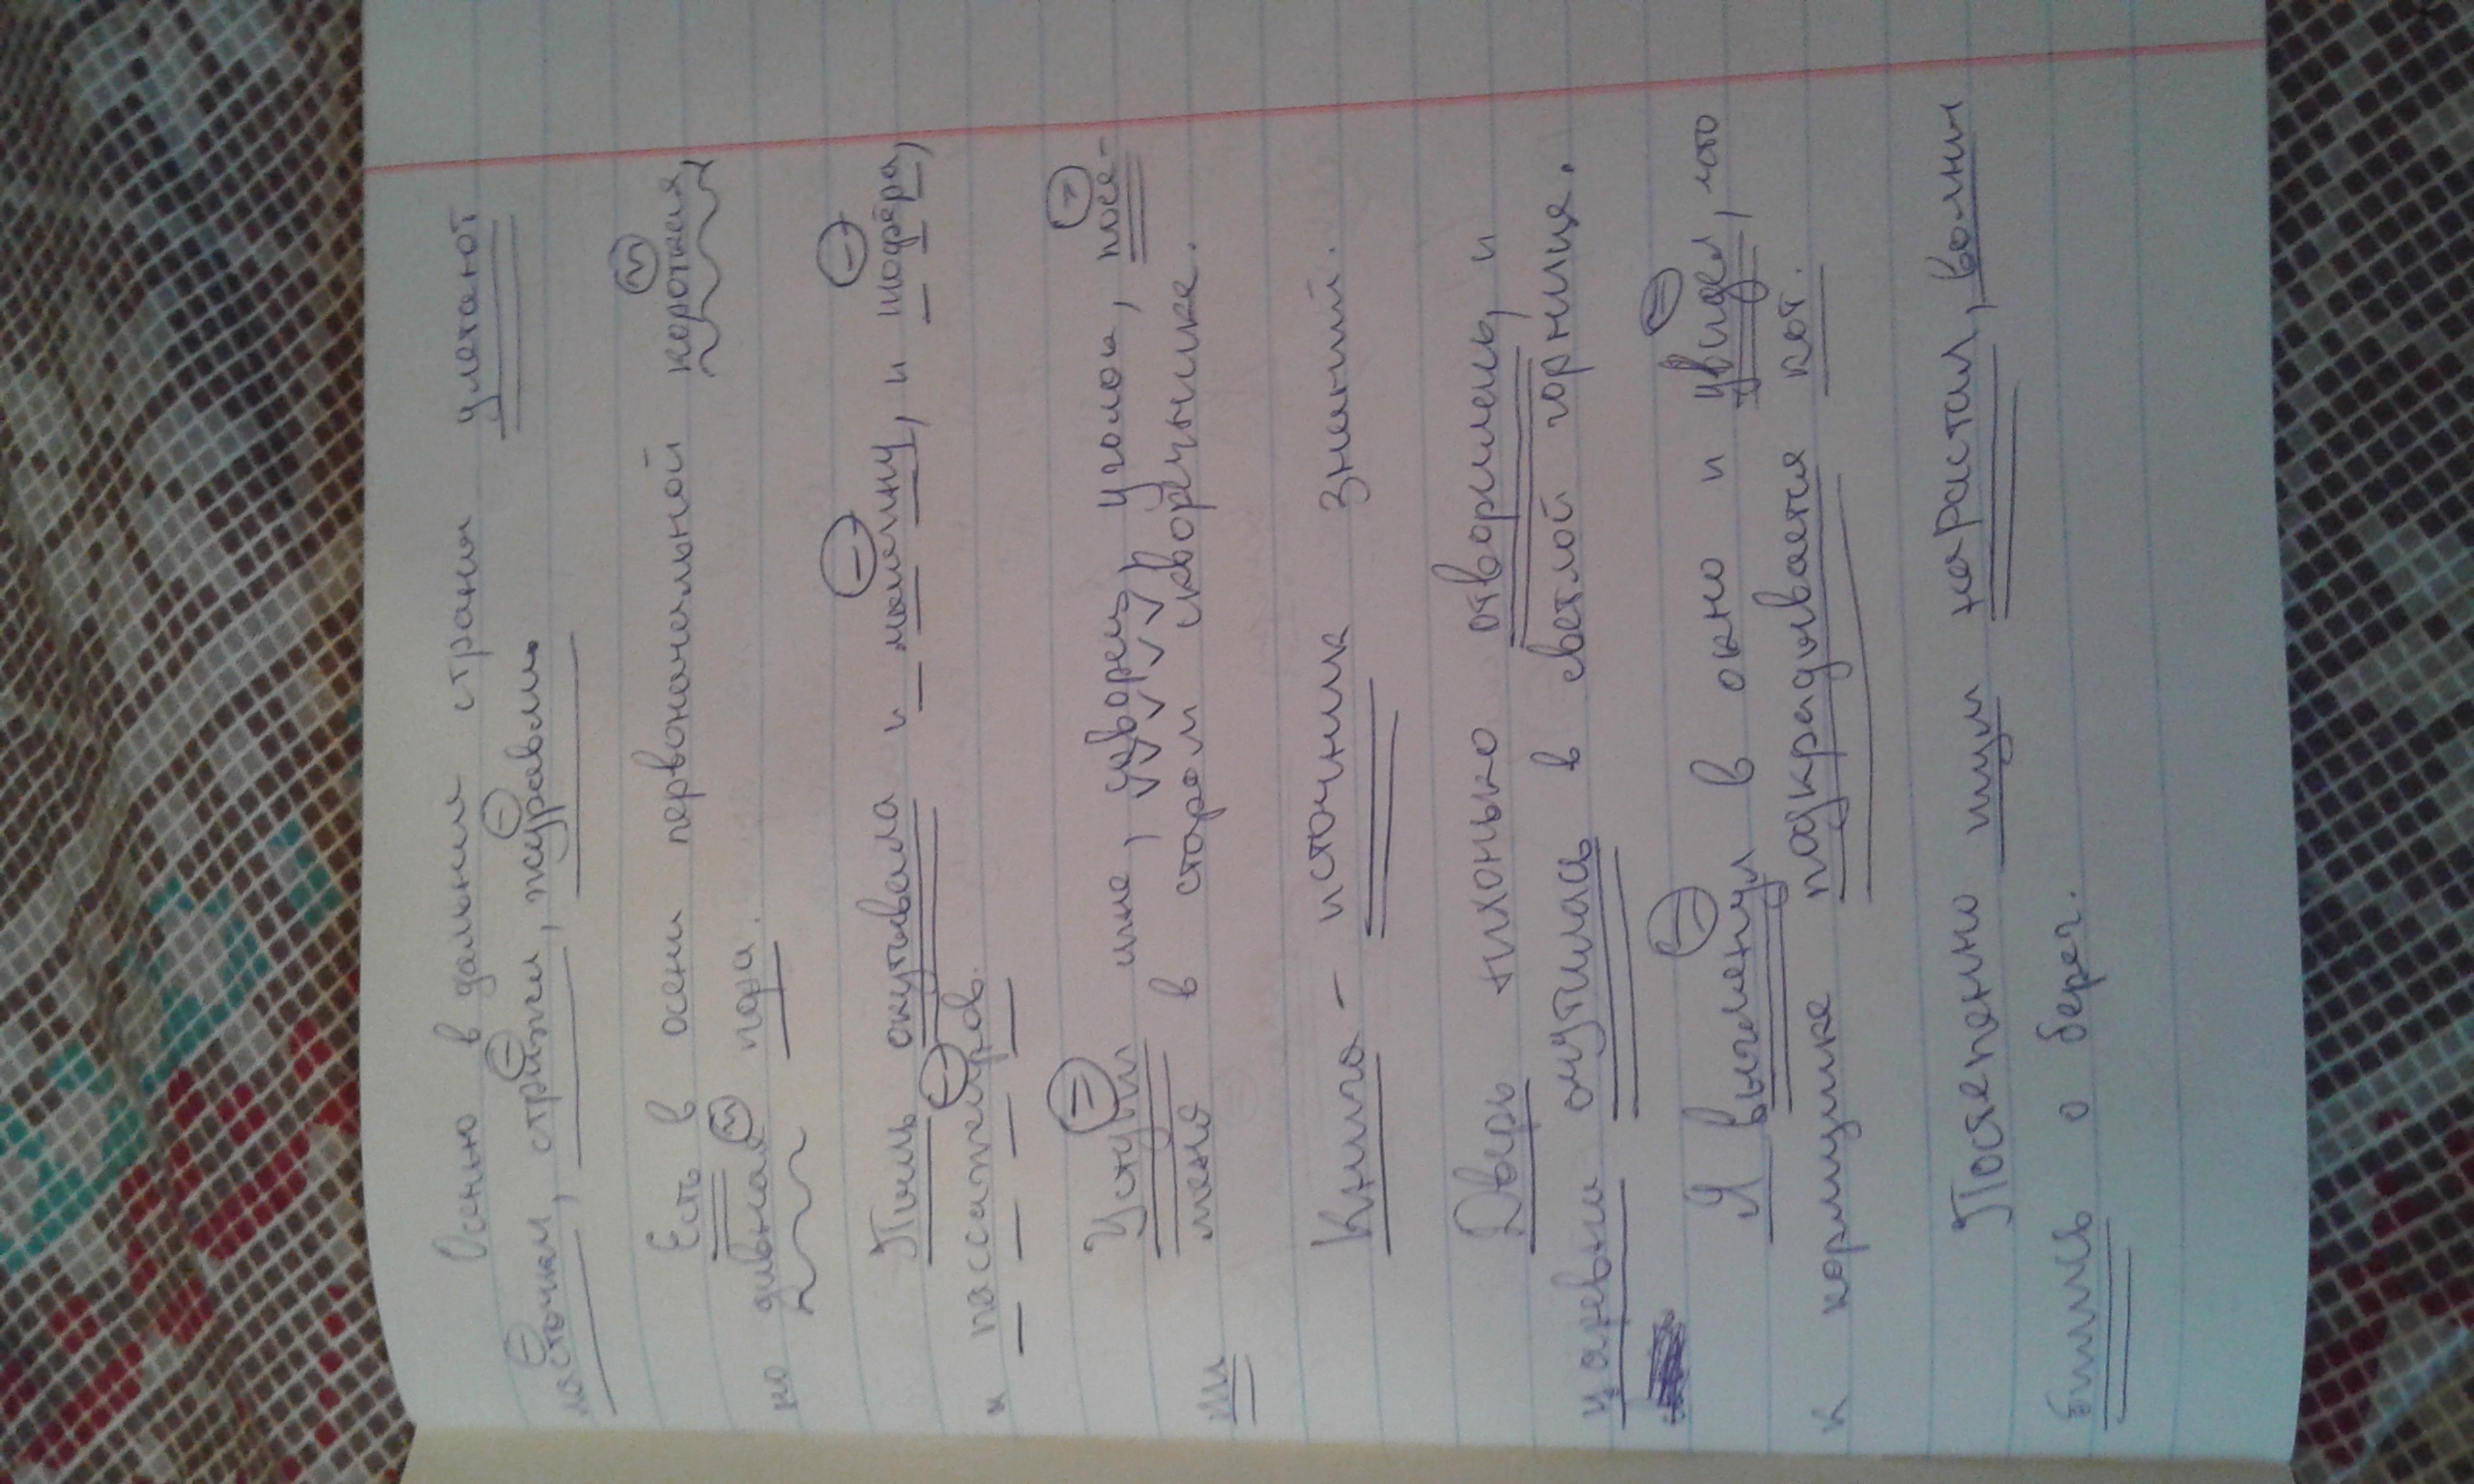 Осенью в дальнии страны улетают
ласточки, стрижи, журавли
Есть в осени первоначальной короткая,
но дивная пора.
Пыль окутывала и машину, и шофёра,
и пассажиров.
Уступи мне, скворец, уголок, посе-
ли меня в старом скворечнике.
Книга - источник знаний.
Дверь тихонько отворилась, и
царевна очутилась в светлой горнице.
Я выглянул в окно и увидел, что
к кормушке подкрадывается кот.
Постепенно шум нарастал, волны
бились о берег.